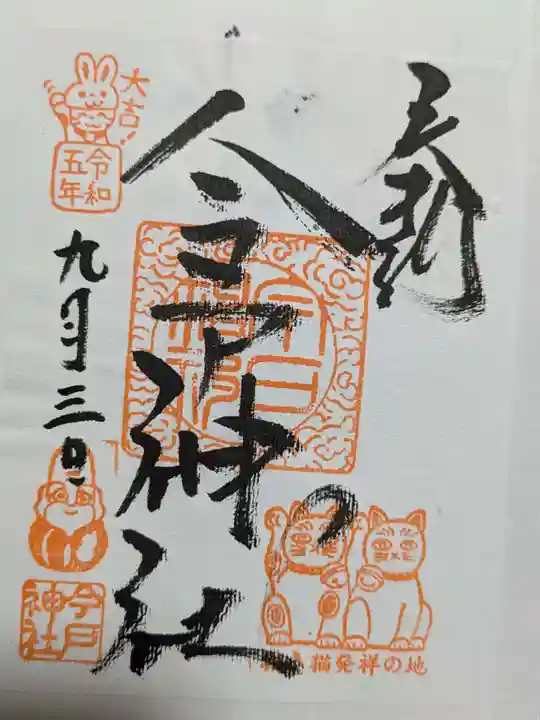 奉拝
今戸神社
大吉
令和
五年
九月三日
今戸
神社
猫発祥の地